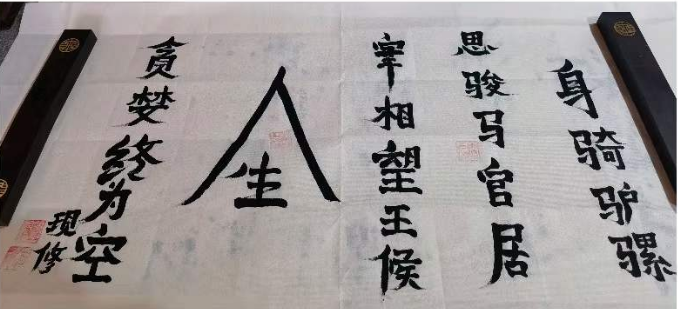 身骑驴骡
思骏马官居
宰相望王候
人生
贪婪终为空
现修